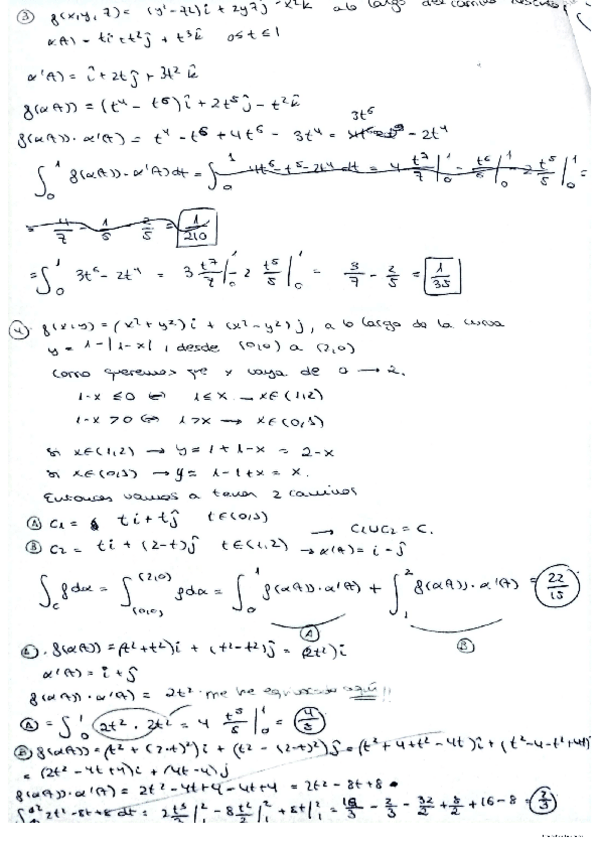 ③ f(x,y,z) = (y²-z²)i + 2yzj - x²k a lo largo del camino descrito
α(t) = ti + t²j + t³k 0≤t≤1
α'(t) = i + 2tj + 3t²k
f(α(t)) = (t⁴ - t⁶)i + 2t⁵j - t²k
f(α(t))·α'(t) = t⁴ - t⁶ + 4t⁶ - 3t⁴ = 3t⁶ - 2t⁴
∫₀¹ f(α(t))·α'(t)dt = ∫₀¹ 4t⁶-t⁵-2t⁴ dt = 4 t⁷/7 |₀¹ - t⁶/6 |₀¹ - 2 t⁵/5 |₀¹ =
= 4/7 - 1/6 - 2/5 = 1/210
= ∫₀¹ 3t⁶ - 2t⁴ = 3 t⁷/7 |₀¹ - 2 t⁵/5 |₀¹ = 3/7 - 2/5 = 1/35
④. f(x,y) = (x²+y²)i + (x²-y²)j, a lo largo de la curva
y = 1-|1-x|, desde (0,0) a (2,0)
Como queremos que x vaya de 0 → 2.
1-x ≤0 ⇔ 1≤x → x∈(1,2)
1-x >0 ⇔ 1>x → x∈(0,1)
si x∈(1,2) → y = 1+1-x = 2-x
si x∈(0,1) → y = 1-1+x = x.
Entonces vamos a tener 2 caminos
Ⓐ C1 = ti + tj t∈(0,1)
→ C1∪C2 = C.
Ⓑ C2 = ti + (2-t)j t∈(1,2) → α'(t) = i - j
∫c fdα = ∫(0,0)^(2,0) fdα = ∫₀¹ f(α(t))·α'(t) + ∫₁² f(α(t))·α'(t) = 22/15
Ⓐ Ⓑ
Ⓐ. f(α(t)) = (t²+t²)i + (t²-t²)j = (2t²)i
α'(t) = i + j
f(α(t))·α'(t) = 2t² me he equivocado aquí!!
Ⓐ = ∫₀¹ 2t²·2t² = 4 t⁵/5 |₀¹ = 4/5
Ⓑ f(α(t)) = (t² + (2-t)²)i + (t² - (2-t)²)j = (t²+4+t²-4t)i + (t²-4-t²+4t)
= (2t² - 4t + 4)i + (4t-4)j
f(α(t))·α'(t) = 2t² - 4t + 4 - 4t + 4 = 2t² - 8t + 8
∫₁² 2t²-8t+8 dt = 2 t³/3 |₁² - 8 t²/2 |₁² + 8t |₁² = 16/3 - 2/3 - 32/2 + 8/2 + 16 - 8 = 2/3